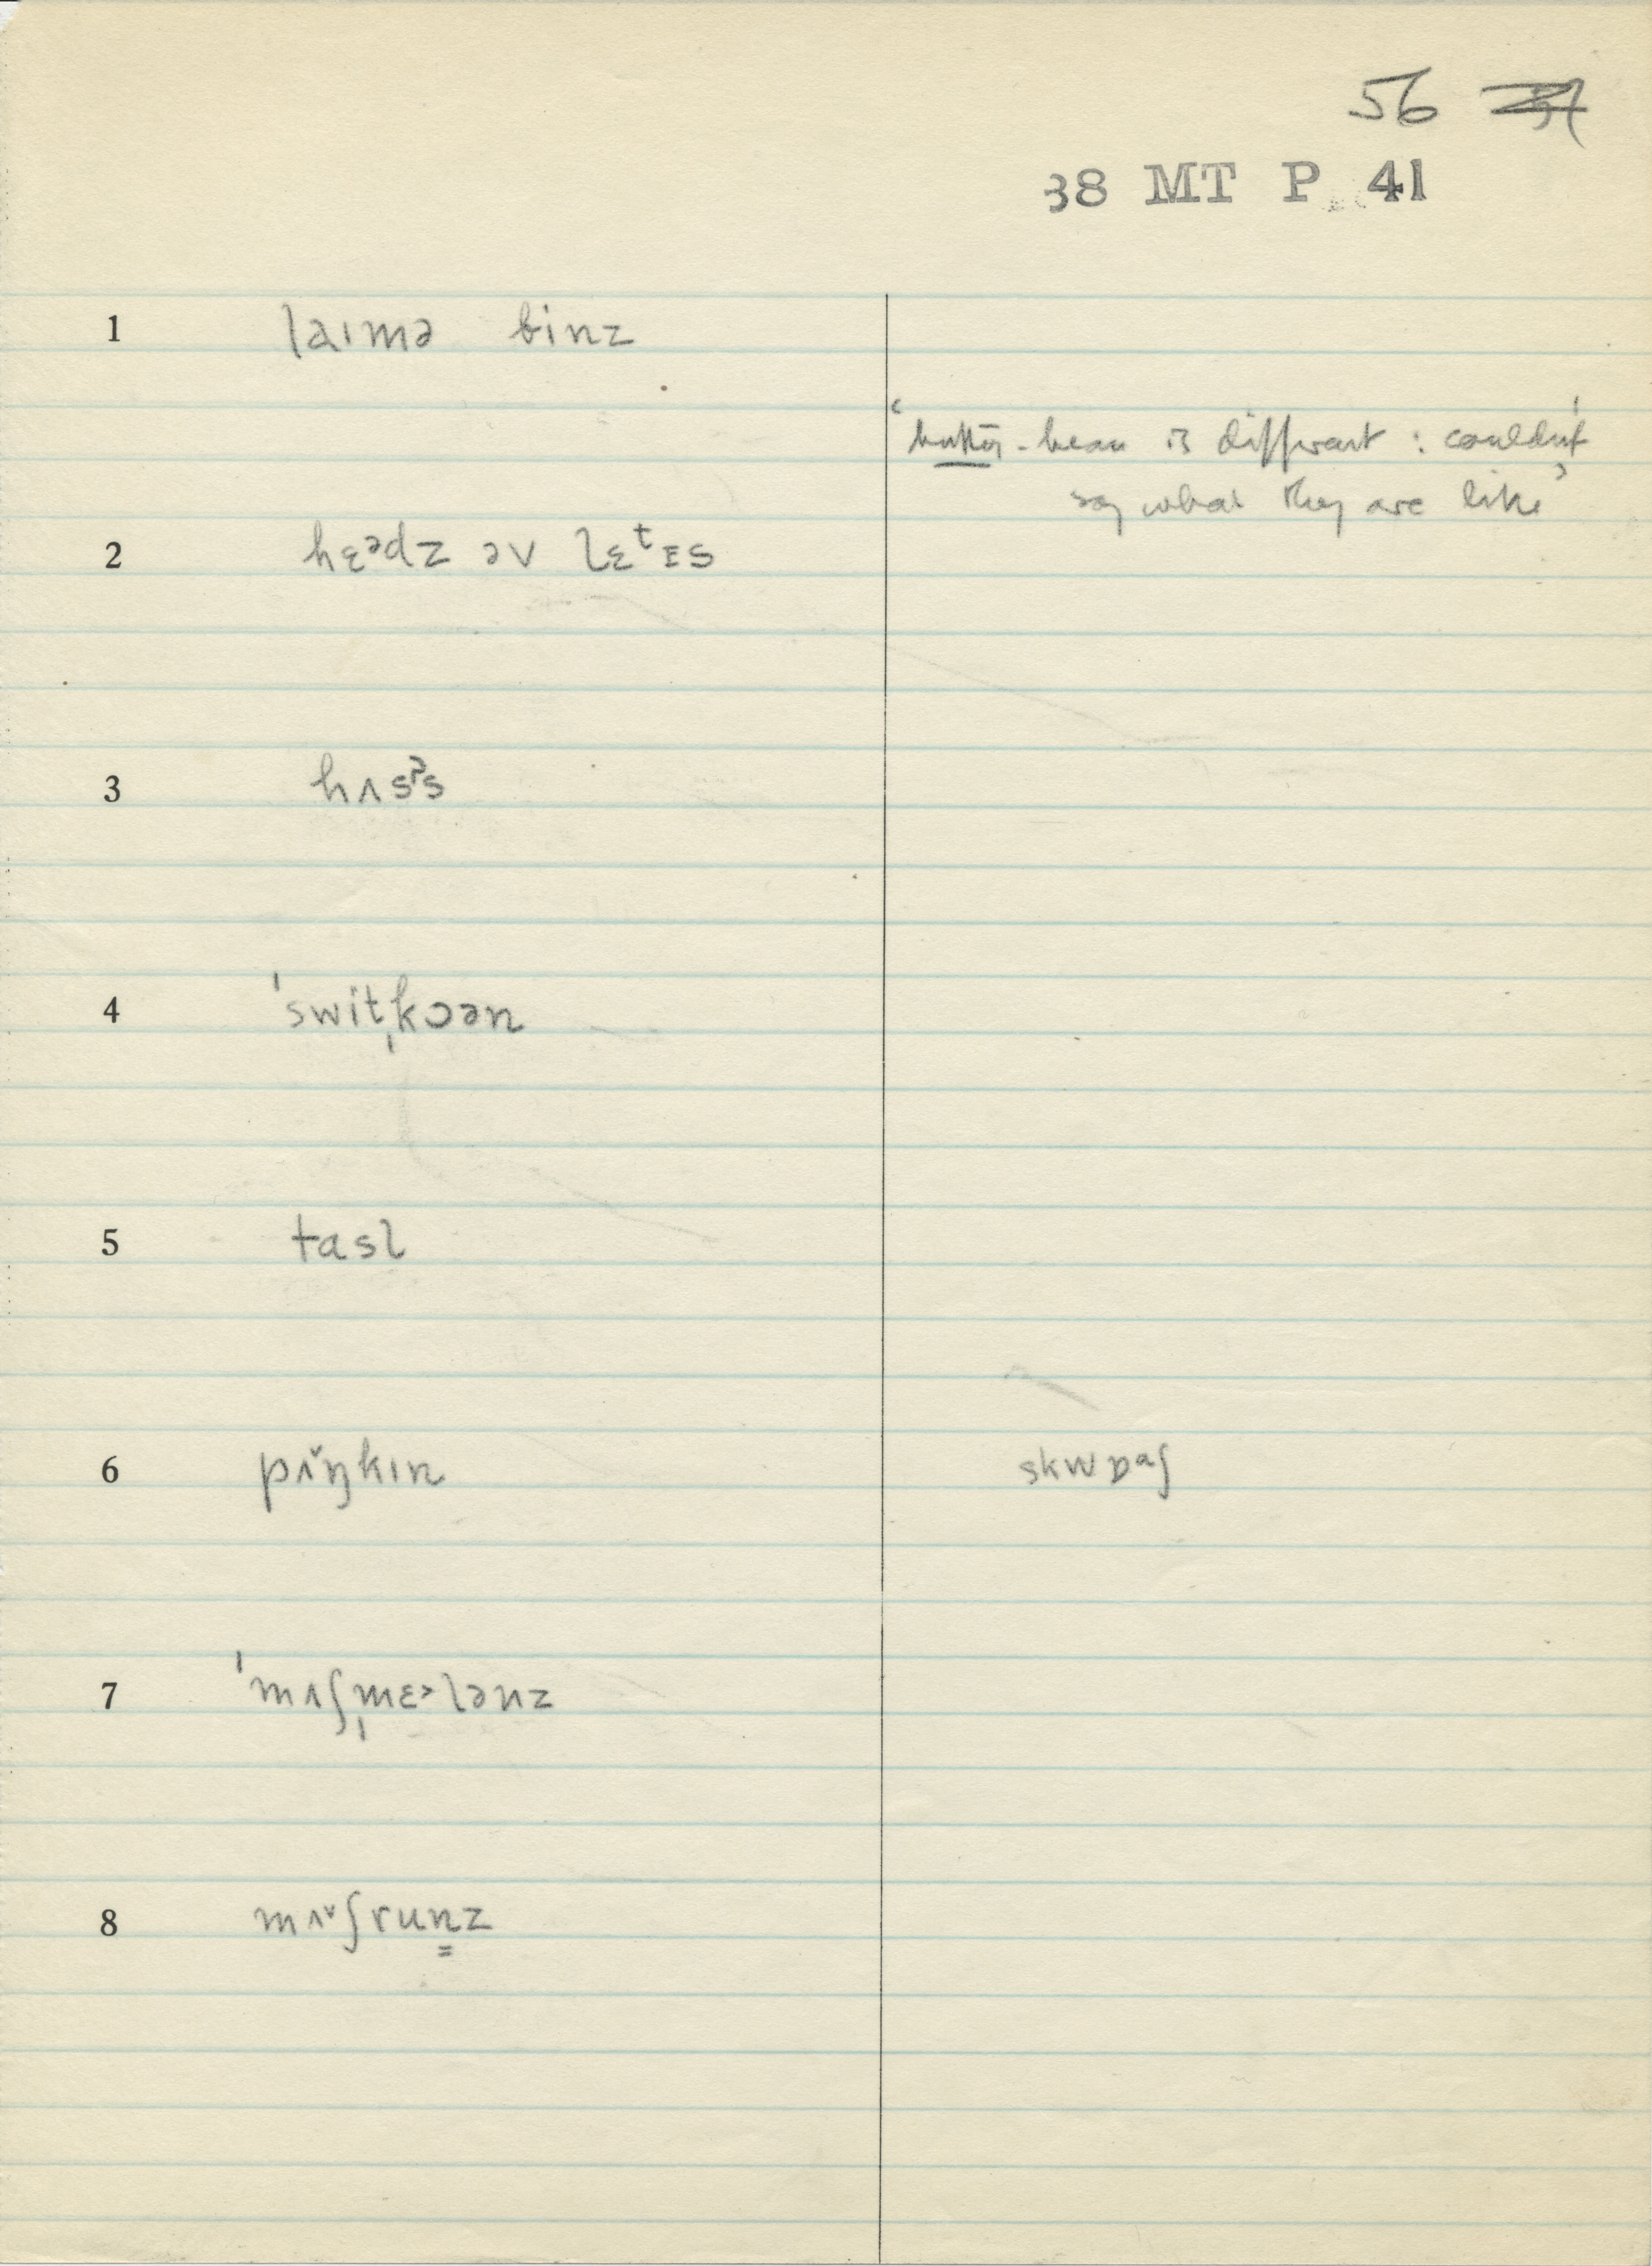 56
38 MT P 41
1 laɪmə binz
‘butter-bean is different : couldn't
say what they are like’
2 hɛᵊdz əv lɛᵗɪs
3 hʌsᵖs
4 ˈswitˌkɔən
5 tasl
6 pʌ̌ŋkɪn skwɒᵊʃ
7 ˈmʌʃˌmɛ˃lənz
8 mʌ˅ʃrun̳z